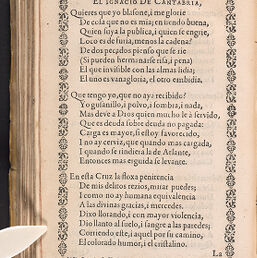 EL IGNACIO DE CANTABRIA,
Quieres que yo blasone, i me glorie
De cosa que no es mia; en siendo buena,
Quien suya la publica, i quien se engrie,
Loco es de furia, menos la cadena?
De dos pecados pienso que se rie
(Si pueden hermanarse risa, i pena)
El que invisible con las almas lidia;
El uno es vanagloria, el otro embidia.
Que tengo yo, que no aya recibido?
Yo gusanillo, i polvo, i sombra, i nada,
Mas deve a Dios quien mucho le à servido,
Que es deuda sobre deuda no pagada:
Carga es mayor, si estoy favorecido,
I no ay cerviz, que quando mas cargada,
I quando se rindiera la de Atlante,
Entonces mas erguida se levante.
En esta Cruz la floxa penitencia
De mis delitos rezios, matar puedes;
I como no ay humana equivalencia
A las divinas gracias, i mercedes.
Dixo llorando, i con mayor violencia,
Dio llanto al suelo, i sangre a las paredes;
Corriendo este, i aquel por su camino,
El colorado humor, i el cristalino.
La